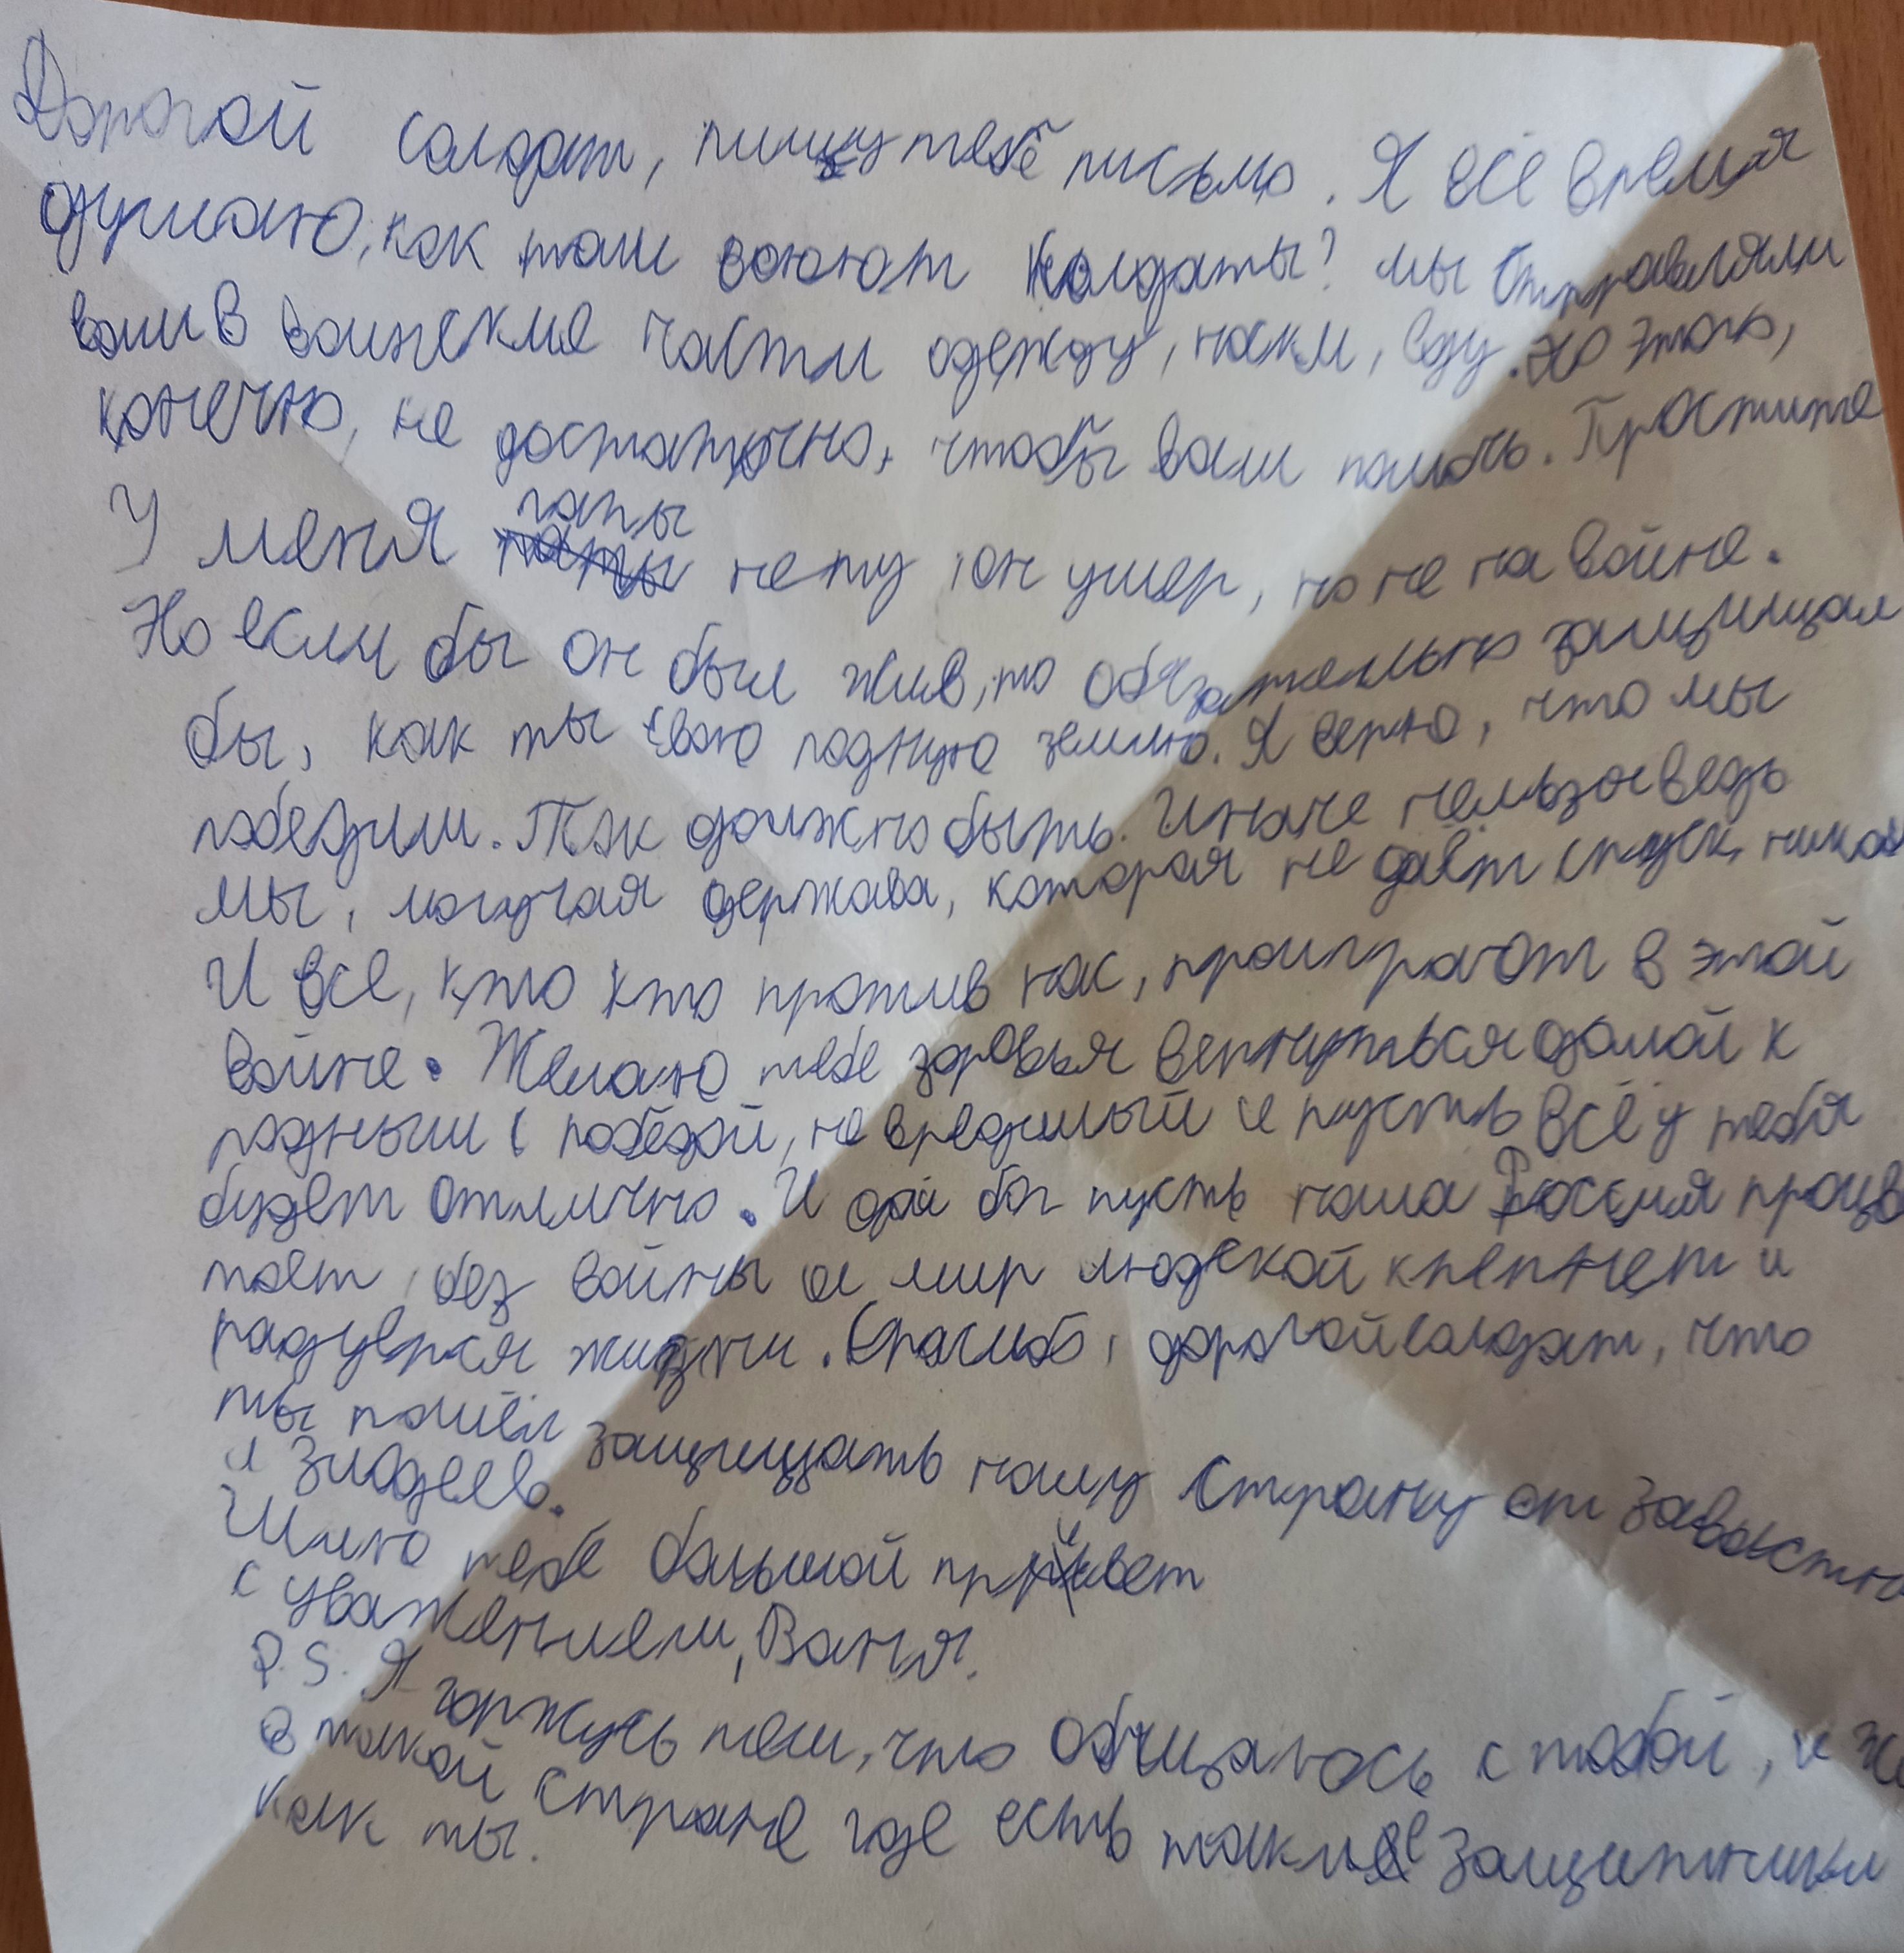 Дорогой солдат, пишу тебе письмо. Я всё время
думаю, как там воюют солдаты? мы отправляли
вам в воинские части одежду, носки, еду. Но этого,
конечно, не достаточно, чтобы вам помочь. Простите
У меня папы нету, он умер, но не на войне.
Но если бы он был жив, то обязательно защищал
бы, как ты свою родную землю. Я верю, что мы
победим. Так должно быть. Иначе нельзя ведь
мы, могучая держава, которая не даёт спуск
И все, кто кто против нас, проиграют в этой
войне. Желаю тебе здоровья вернуться домой к
родным с победой, не вредимый и пусть всё у тебя
будет отлично. И дай бог пусть наша Россия процв
тает, без войны и мир людской крепнет и
радуется жизни. Спасибо, дорогой солдат, что
ты пошёл защищать нашу страну от
и злодеев.
Шлю тебе большой привет
с уважением, Ваня.
P.S. Я горжусь тем, что общаюсь с тобой, и
в такой стране где есть такие защитники
как ты.